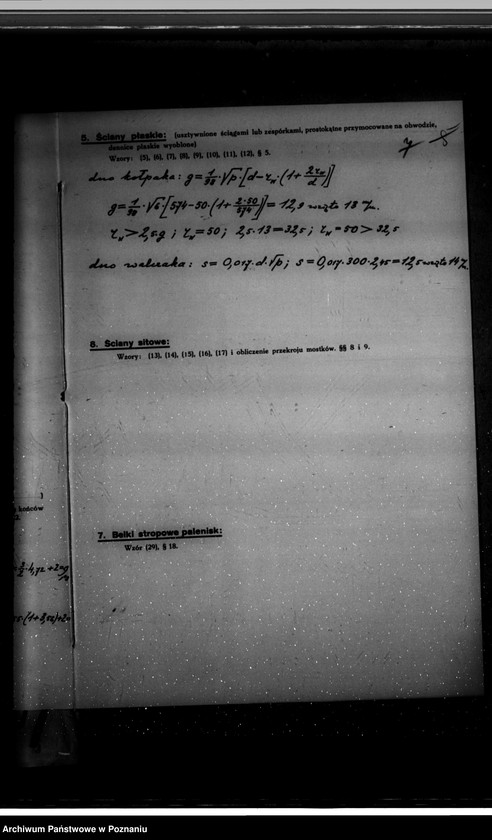 5. Ściany płaskie: (usztywnione ściągami lub zespórkami, prostokątne przymocowane na obwodzie,
dennice płaskie wyoblone)
Wzory: (5), (6), (7), (8), (9), (10), (11), (12), § 5.
7
dno kołpaka: g = 1/98 · √p · [d - r_n · (1 + 2r_n/d)]
g = 1/90 · √6 · [574 - 50 · (1 + 2·50/574)] = 12,9 wzięto 13 %.
r_n > 2,5 g ; r_n = 50 ; 2,5·13 = 32,5 ; r_n = 50 > 32,5
dno walczaka: s = 0,017 · d · √p ; s = 0,017·300·2,45 = 12,5 wzięto 14 %.
6. Ściany sitowe:
Wzory: (13), (14), (15), (16), (17) i obliczenie przekroju mostków. §§ 8 i 9.
)
końców
7. Belki stropowe palenisk:
Wzór (29), § 18.
Archiwum Państwowe w Poznaniu